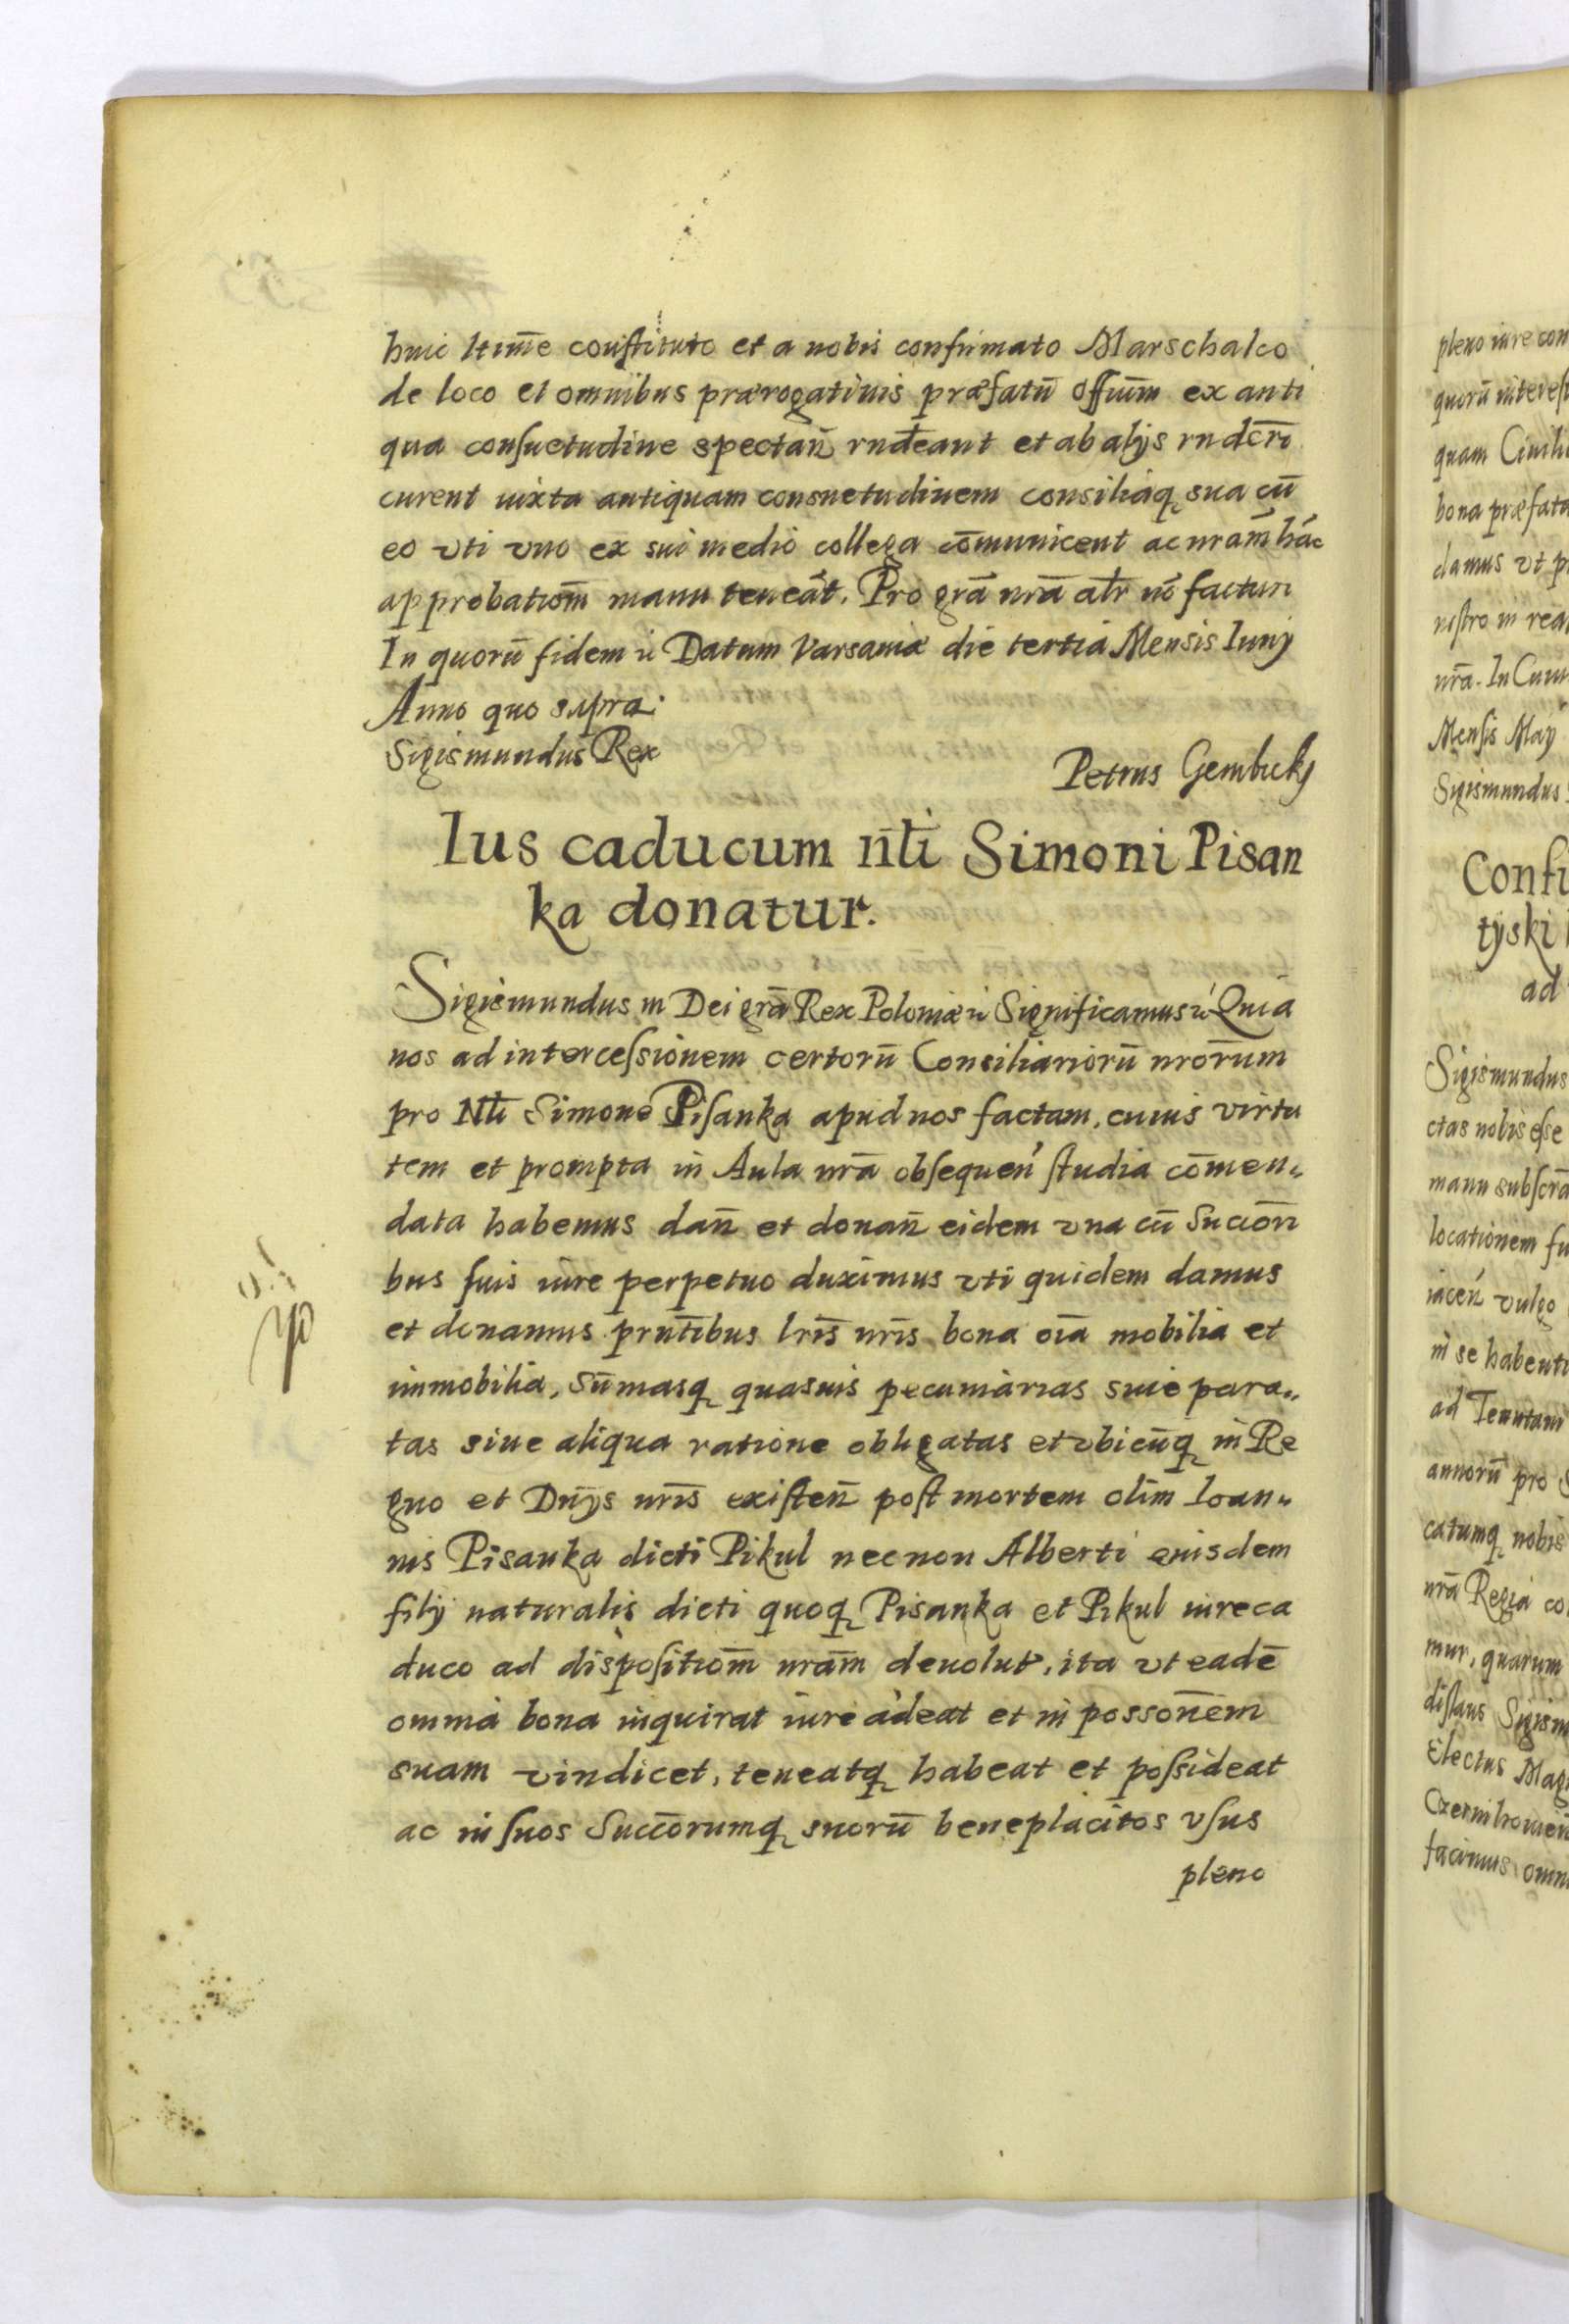 huic ltime̅ constituto et a nobis confirmato Marschalco
de loco et omnibus prærogatiuis præfatu̅ offiu̅m ex anti
qua conſuetudine spectan̅ rnde̅ant et ab alijs rnde̅ri
curent iuxta antiquam consuetudinem consiliaq sua cu̅
eo vti vno ex sui medio collega co̅municent ac nra̅m ha̅c
approbatio̅m manu tenea̅t. Pro gra̅ nra̅ alr̅ no̅ facturi
In quoru̅ fidem Datum Varsauiæ die tertia Mensis Iunij
Anno quo supra.
Sigismundus Rex
Petrus Gembicky
Ius caducum n̅li Simoni Pisan
ka donatur.
Sigismundus III Dei gra̅ Rex Poloniæ Significamus Quia
nos ad interceſsionem certoru̅ Consiliarioru̅ nroru̅m
pro Nli̅ Simone Piſanka apud nos factam, cuius virtu
tem et prompta in Aula nra̅ obſequen̅ ſtudia co̅men„
data habemus dan̅ et donan̅ eidem vna cu̅ Succo̅ri
bus ſuis iure perpetuo duximus vti quidem damus
et donamus prnti̅bus lris̅ nris̅ bona oi̅a mobilia et
immobilia, su̅masq quasuis pecuniarias siue para„
tas siue aliqua ratione obligatas et vbicu̅q in Re
gno et Dn̅ijs nris̅ exiſten̅ poſt mortem olim Ioan„
nis Pisanka dicti Pikul necnon Alberti eiusdem
filij naturalis dicti quoq Pisanka et Pikul iure ca
duco ad diſpoſitio̅m nra̅m deuolut, ita vt eade̅
omnia bona inquirat iure adeat et in posso̅nem
suam vindicet, teneatq habeat et poſsideat
ac in ſuos Succo̅rumq suoru̅ beneplacitos vſus
pleno
pleno iure con
quoru̅ intereſt
quam Ciuili
bona præfata
damus vt p
niſtro in rea
nra̅. In Cuiu
Menſis Maij
Sigismundus
Confi
tyski
ad
Sigismundus
ctas nobis eſse
manu subſcra̅
locationem fu
iacen̅ vulgo
in se habenti
ad Tenutam
annoru̅ pro
catumq nobis
nra̅ Regia co
mur, quarum
diſtans Sigism
Electus Mag
Czernihouien
facimus omn